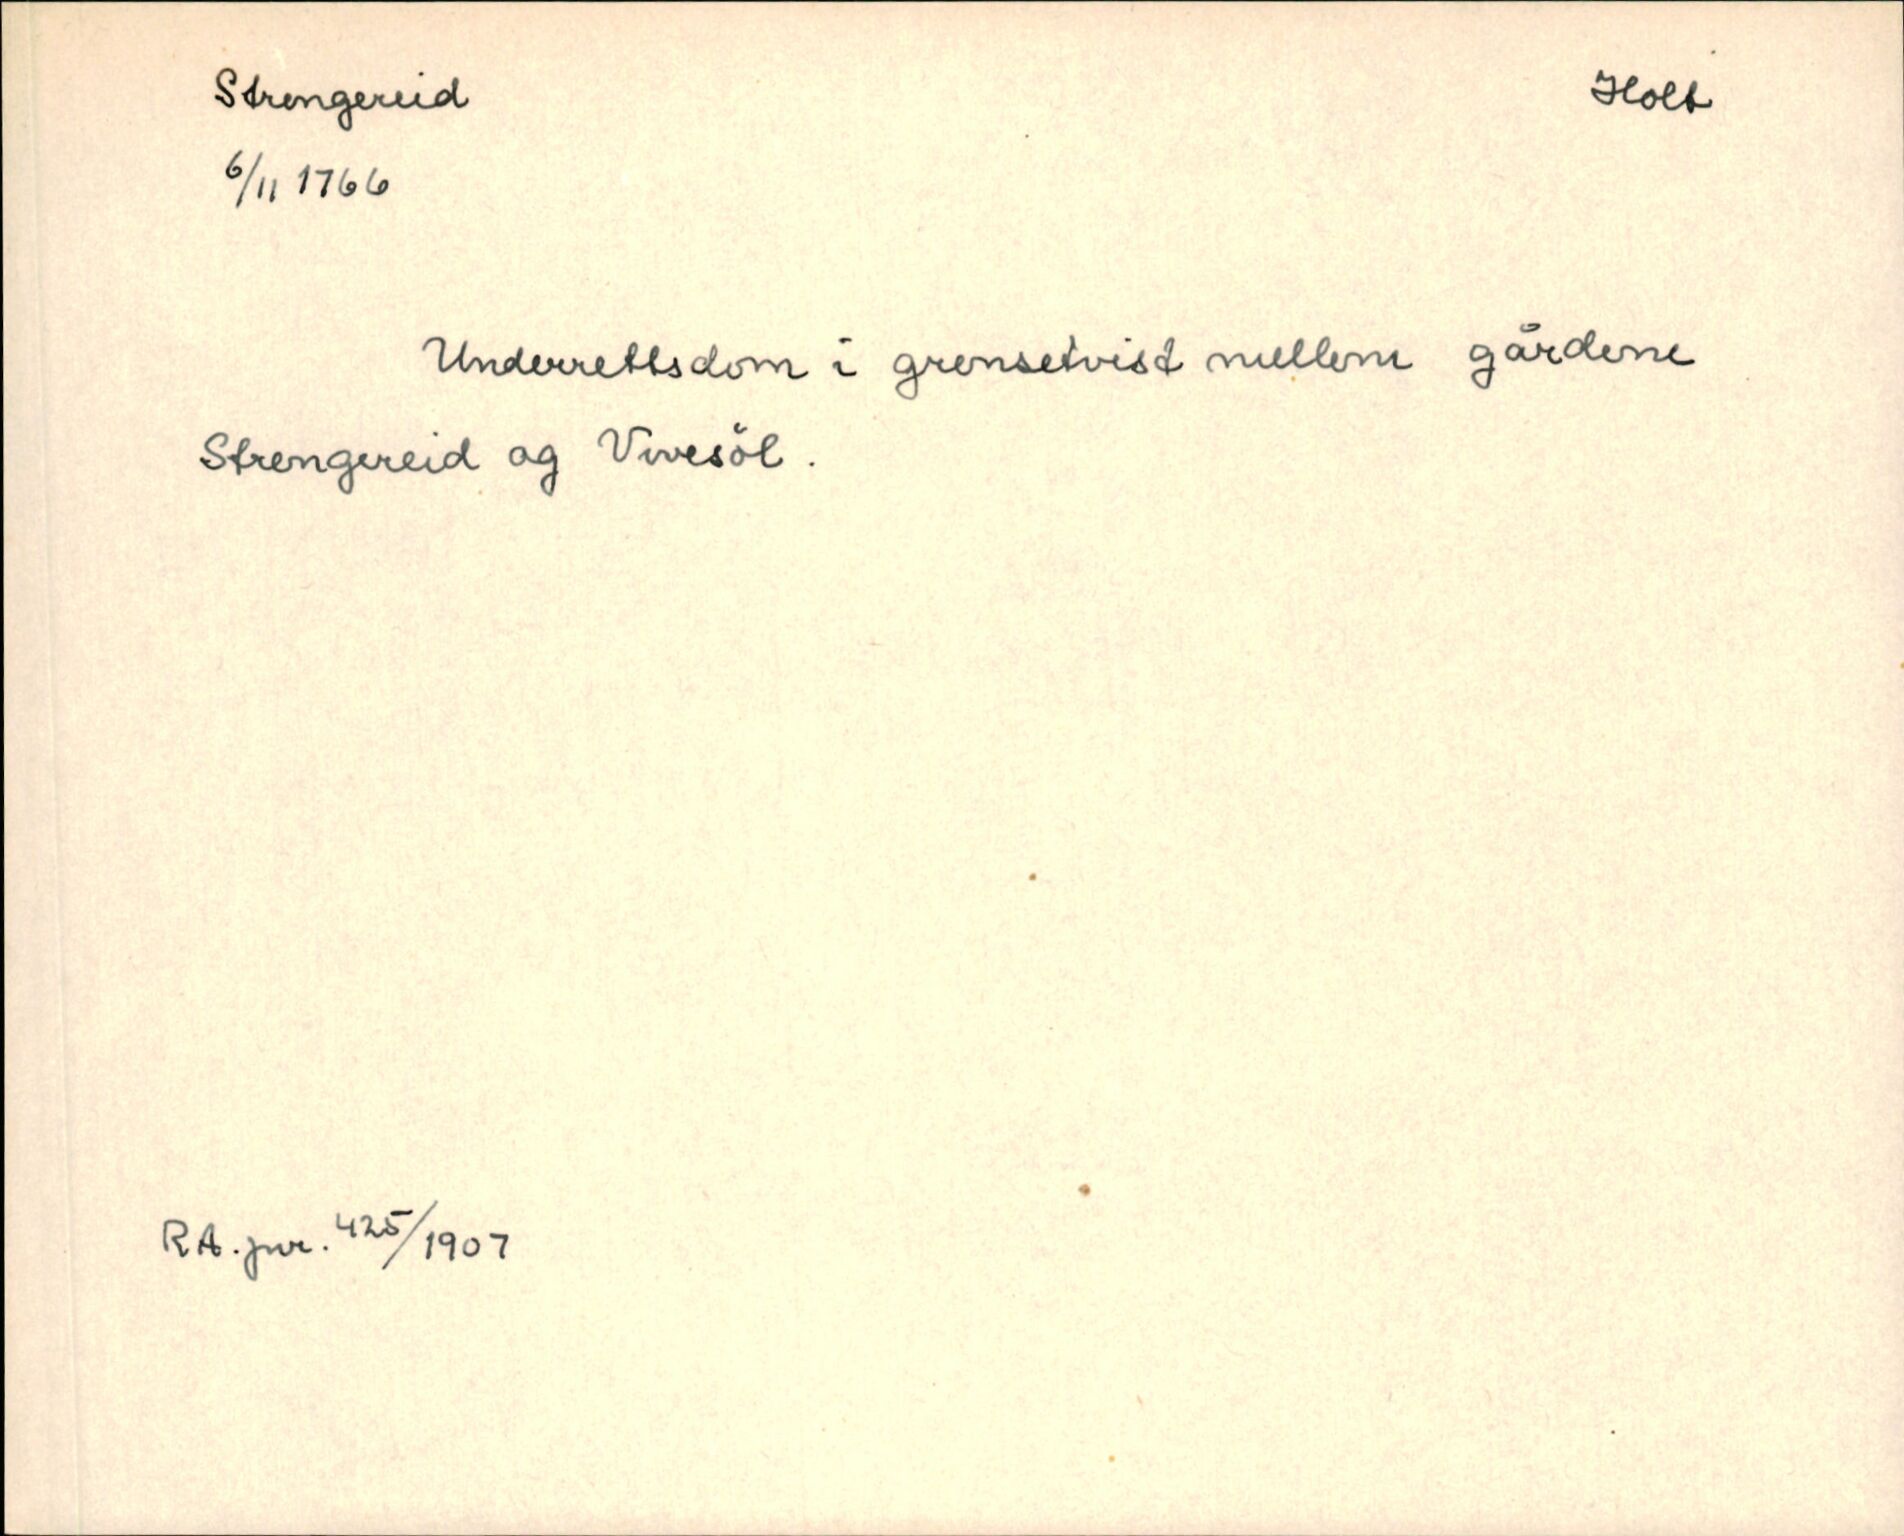 Strengereid Holt
6/11 1766
Underrettsdom i grensetvist mellem gårdene
Strengereid og Vivesöl.
RA. jnr. 425/1907